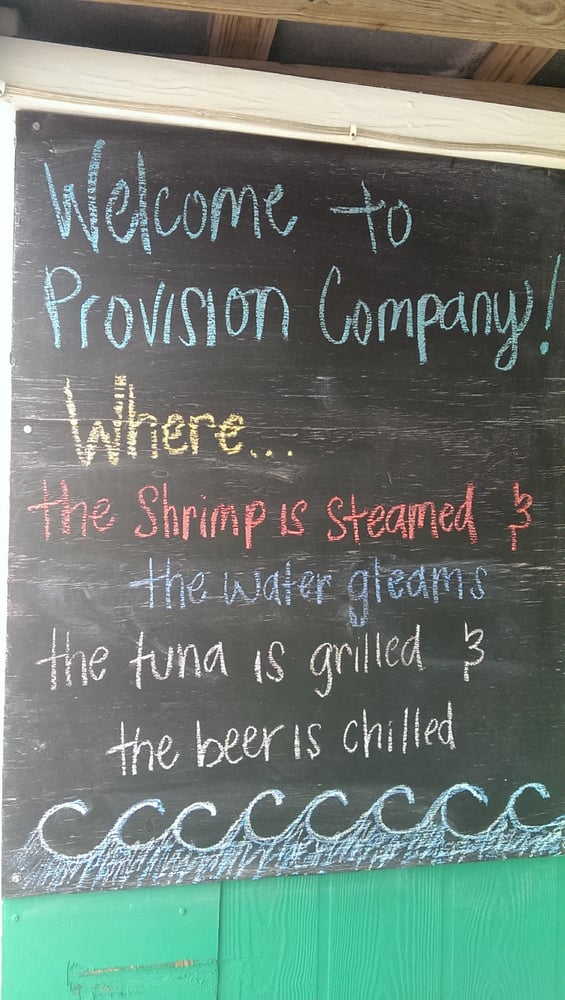 Welcome to
Provision Company!
Where...
the Shrimp is steamed &
the water gleams
the tuna is grilled &
the beer is chilled